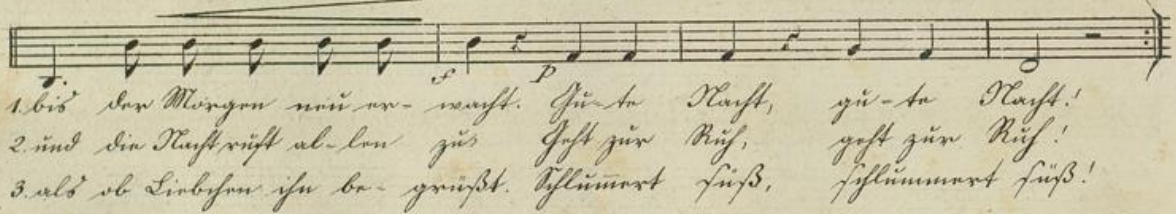 f p
1. bis der Morgen neu er- wacht. Gu-te Nacht, gu-te Nacht!
2. und die Nacht ruft al-len zu: Geht zur Ruh, geht zur Ruh!
3. als ob Liebchen ihn be- grüßt. Schlum̄ert süß, schlummert süß!